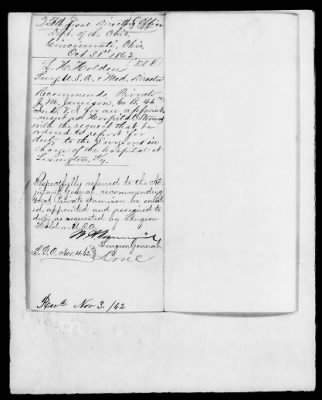 Office
Dept. of the Ohio,
Cincinnati, Ohio,
Oct 31st 1862.
Holden
Surg. U.S.A. & Med. Director
Recommends Private
J. M. Co. B. 46th
for an appoint-
ment as Hospital Steward
with the request that he
ordered to report for
duty to the Surgeon in
charge of the hospital at
Lexington, Ky.
Respectfully referred to the Ad-
jutant General recommending
that Private Jamison be enlist-
ed, appointed and assigned to
duty as requested by Surgeon
Holden U.S.A.
Surgeon General
S.G.O. Nov. 1862
Done
Recd. Nov 3. /62